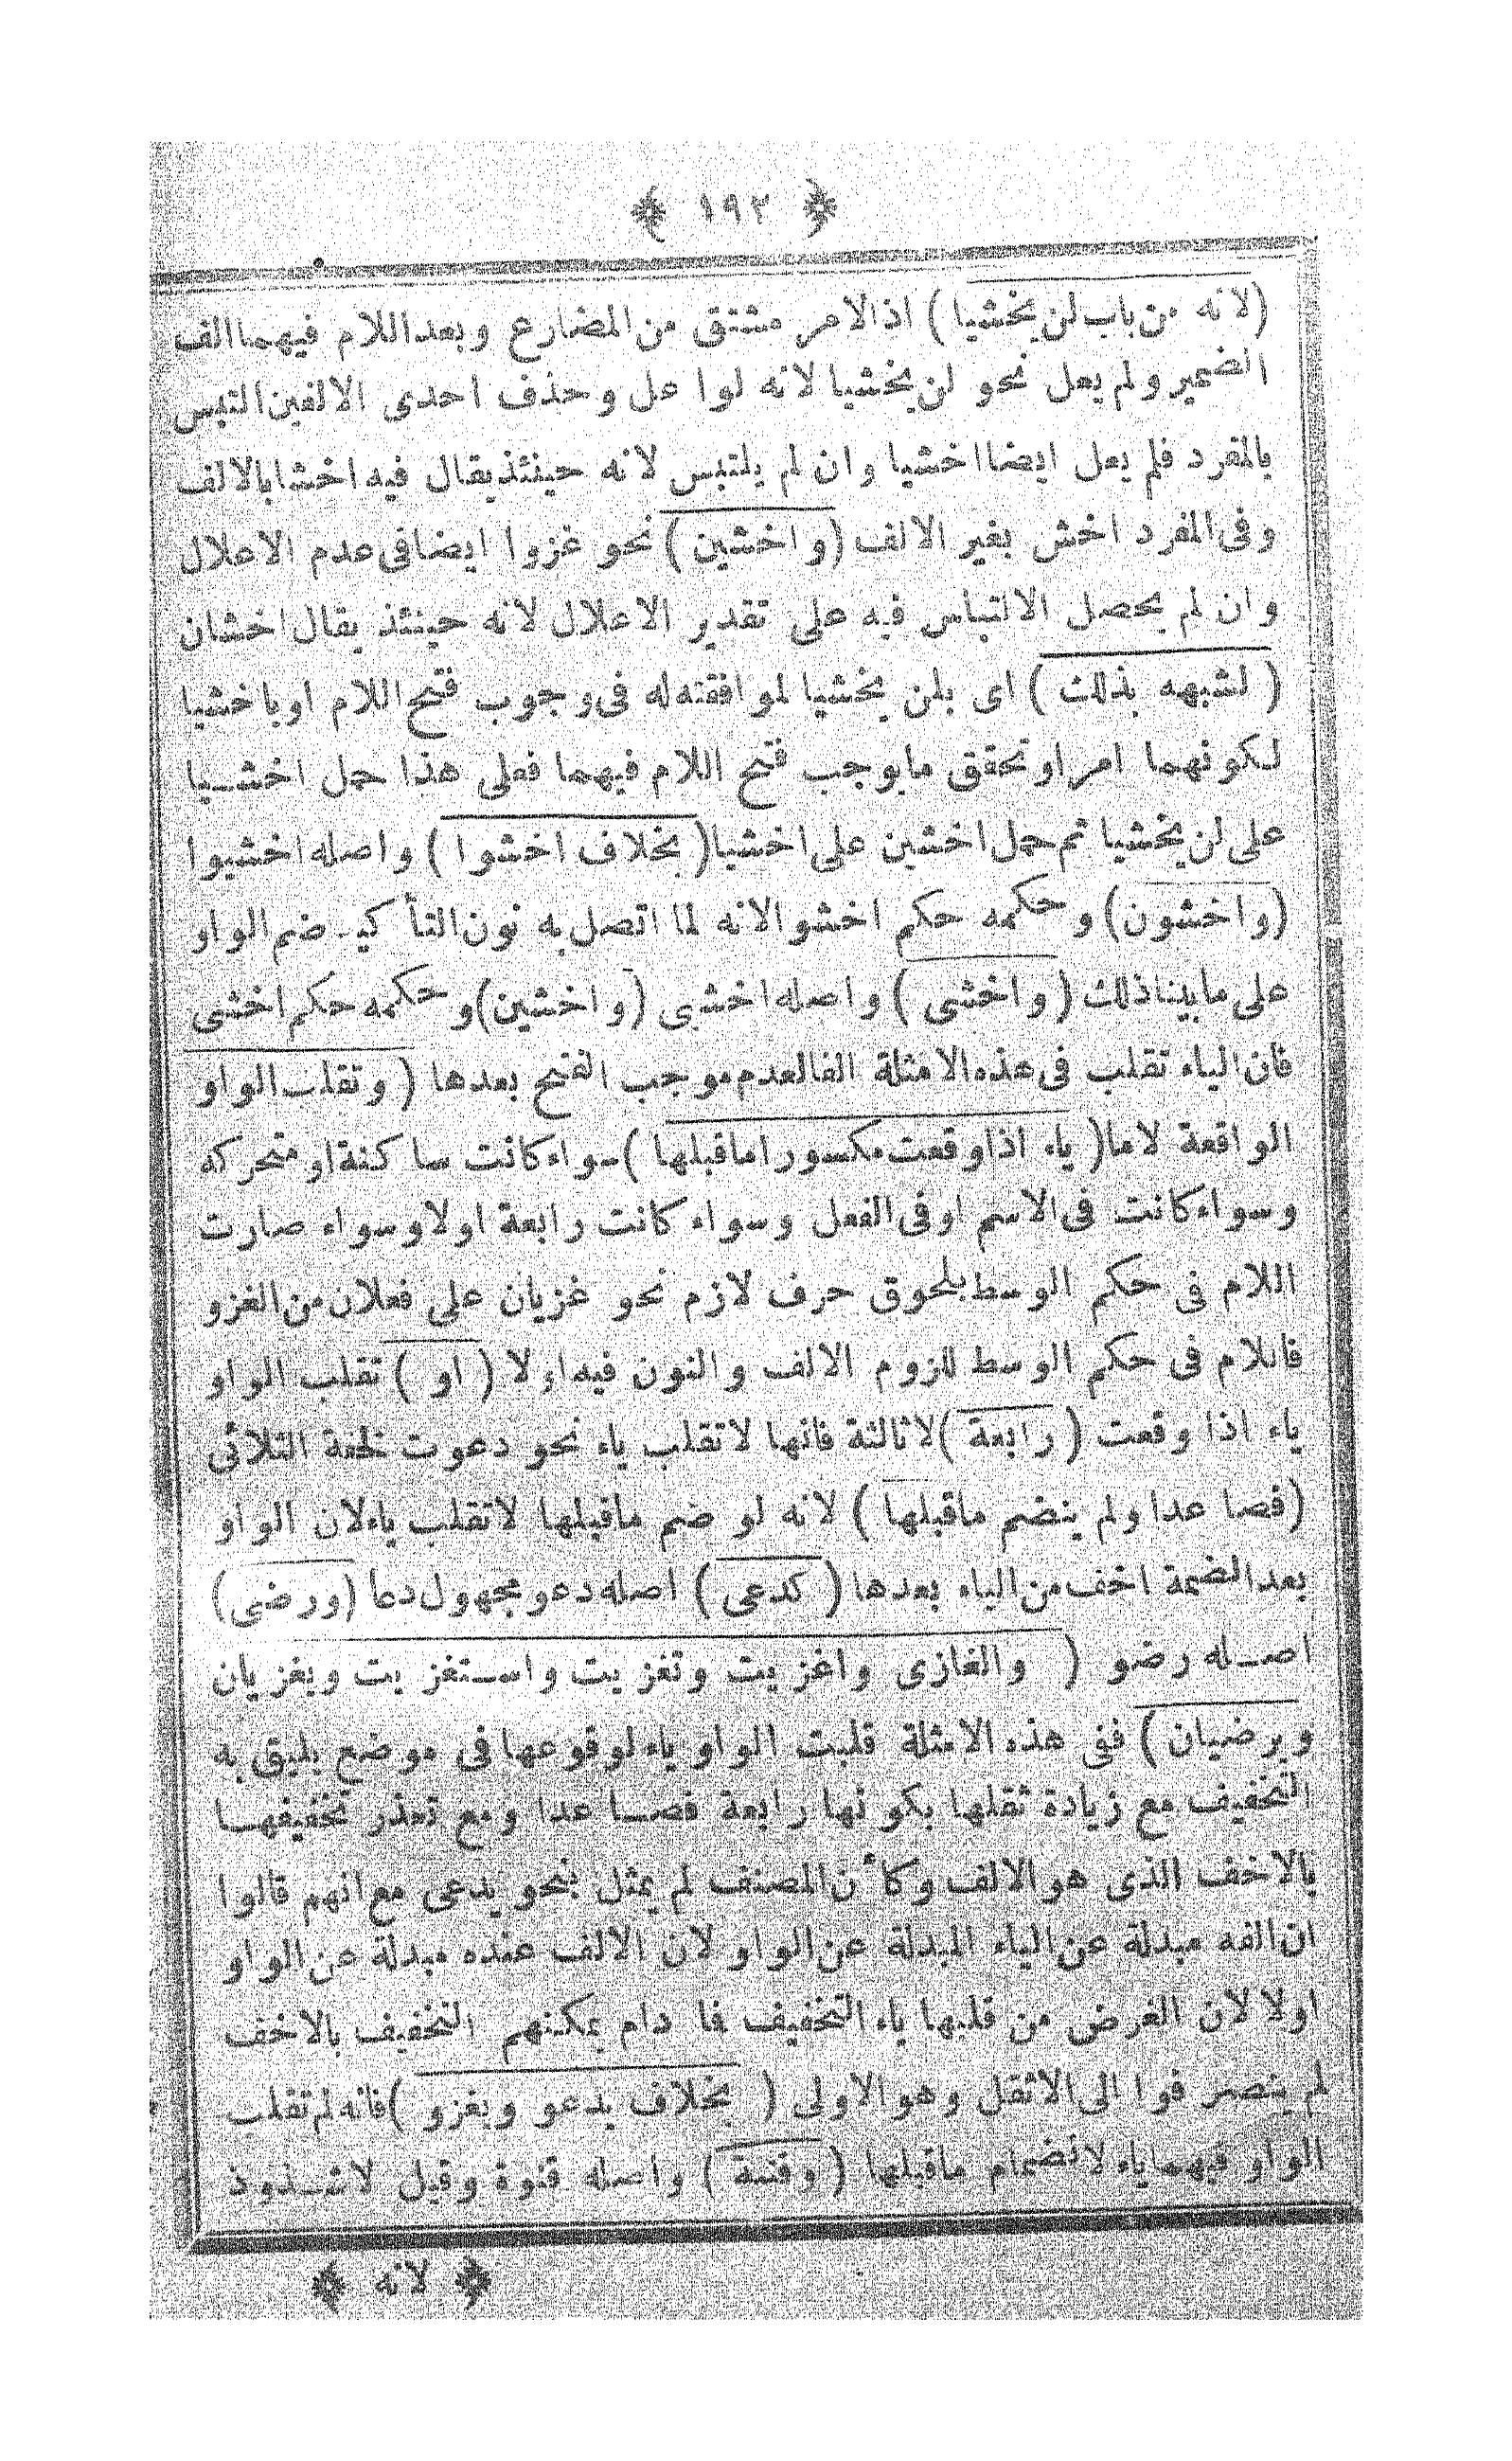 ﴿ ١٩٢ ﴾
(لانه من باب لن يخشيا) اذ الامر مشتق من المضارع وبعد اللام فيهما الف
الضمير ولم يعل نحو لن يخشيا لانه لو اعل وحذف احدى الالفين التبس
بالمفرد فلم يعل ايضا اخشيا وان لم يلتبس لانه حينئذ يقال فيه اخشا بالالف
وفى المفرد اخش بغير الالف (واخشين) نحو غزوا ايضا فى عدم الاعلال
وان لم يحصل الالتباس فيه على تقدير الاعلال لانه حينئذ يقال اخشان
(لشبهه بذلك) اى بلن يخشيا لموافقته له فى وجوب فتح اللام او باخشيا
لكونهما امرا وتحقق ما يوجب فتح اللام فيهما فعلى هذا حمل اخشيا
على لن يخشيا ثم حمل اخشين على اخشيا (بخلاف اخشوا) واصله اخشيوا
(واخشون) وحكمه حكم اخشوا لانه لما اتصل به نون التأكيد ضم الواو
على ما بينا ذلك (واخشى) واصله اخشيى (واخشين) وحكمه حكم اخشى
فان الياء تقلب فى هذه الامثلة الفا لعدم موجب الفتح بعدها (وتقلب الواو
الواقعة لاما (ياء اذا وقعت مكسورا ما قبلها) سواء كانت ساكنة او متحركه
وسواء كانت فى الاسم او فى الفعل وسواء كانت رابعة اولا وسواء صارت
اللام فى حكم الوسط بلحوق حرف لازم نحو غزيان على فعلان من الغزو
فاللام فى حكم الوسط للزوم الالف والنون فيه اولا (او) تقلب الواو
ياء اذا وقعت (رابعة) لا ثالثة فانها لا تقلب ياء نحو دعوت لخفة الثلاثى
(فصاعدا ولم ينضم ما قبلها) لانه لو ضم ما قبلها لا تقلب ياء لان الواو
بعد الضمة اخف من الياء بعدها (كدعى) اصله دعو مجهول دعا (ورضى)
اصله رضو (والغازى واغزيت وتغزيت واستغزيت ويغزيان
ويرضيان) ففى هذه الامثلة قلبت الواو ياء لوقوعها فى موضع يليق به
التخفيف مع زيادة ثقلها بكونها رابعة فصاعدا ومع تعذر تخفيفها
بالاخف الذى هو الالف وكأن المصنف لم يمثل بنحو يدعى مع انهم قالوا
ان الفه مبدلة عن الياء المبدلة عن الواو لان الالف عنده مبدلة عن الواو
اولا لان الغرض من قلبها ياء التخفيف فا دام يمكنهم التخفيف بالاخف
لم ينصرفوا الى الاثقل وهو الاولى (بخلاف يدعو ويغزو) فانه لم تقلب
الواو فيهما ياء لانضمام ما قبلها (وقنية) واصله قنوة وقيل لا شذوذ
﴿ لانه ﴾